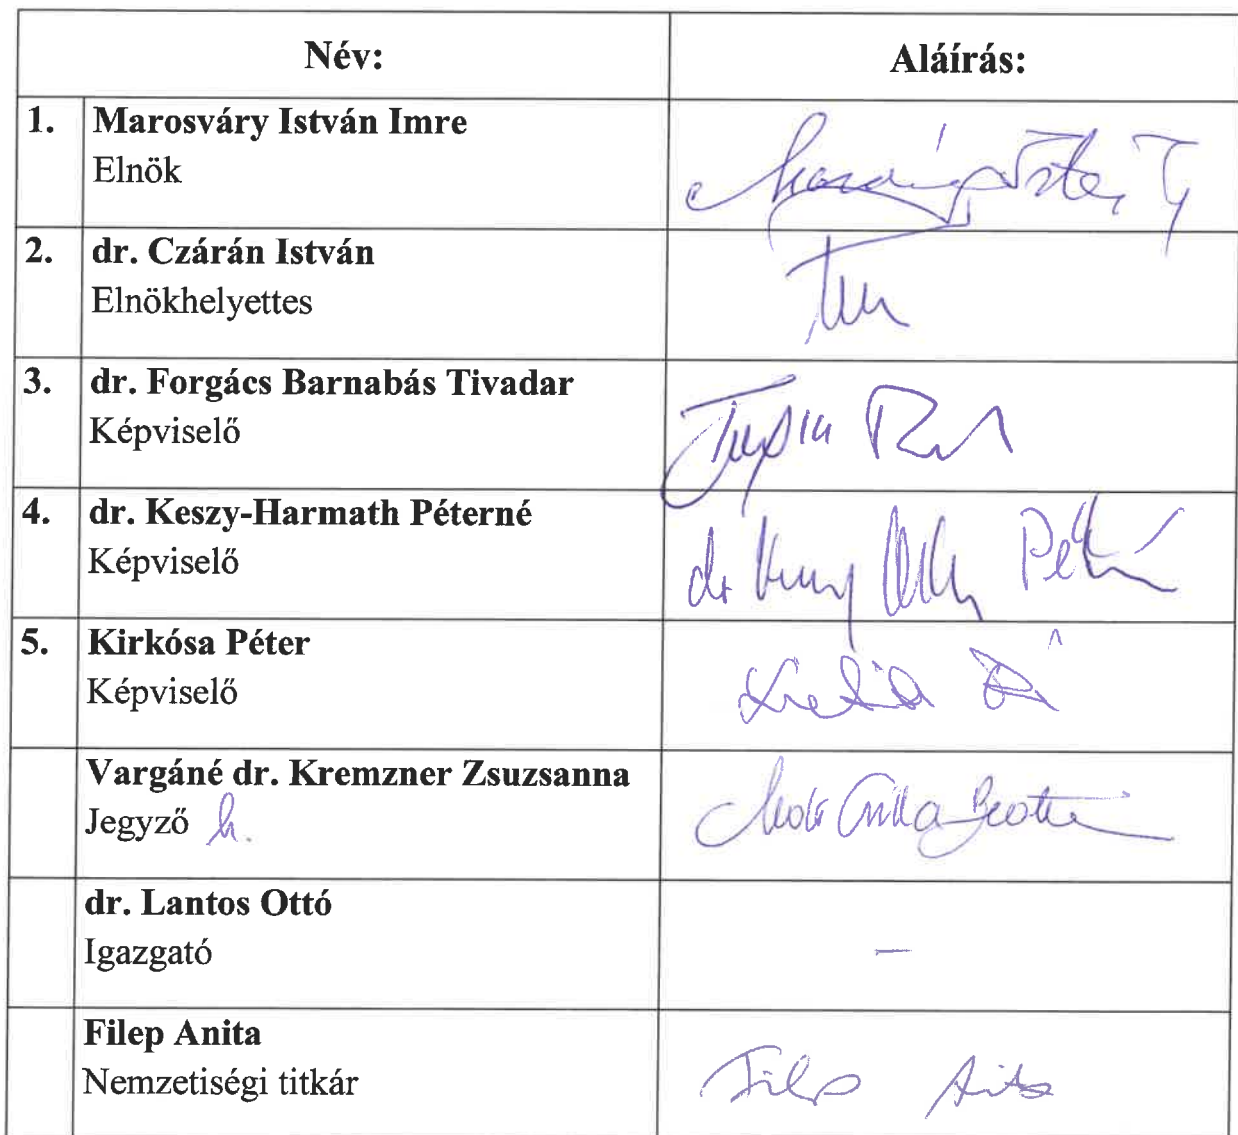 Név: Aláírás:
1. Marosváry István Imre
Elnök
2. dr. Czárán István
Elnökhelyettes
3. dr. Forgács Barnabás Tivadar
Képviselő
4. dr. Keszy-Harmath Péterné
Képviselő
dr
5. Kirkósa Péter
Képviselő
Vargáné dr. Kremzner Zsuzsanna
Jegyző h.
dr. Lantos Ottó
Igazgató
–
Filep Anita
Nemzetiségi titkár
Filep Anita